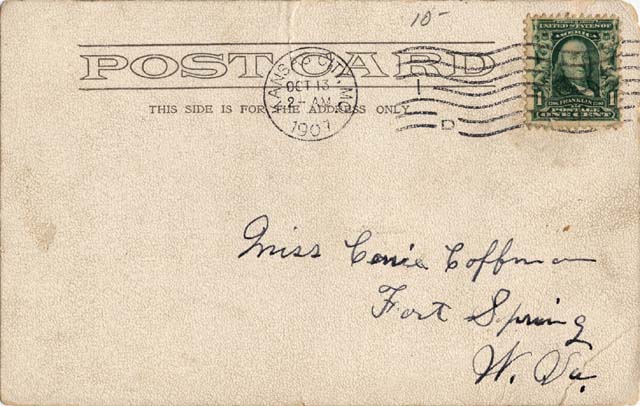 10-
POST CARD
THIS SIDE IS FOR THE ADDRESS ONLY
KANSAS CITY, MO.
OCT 13
2-AM
1907
1
D
UNITED STATES OF
AMERICA
1 FRANKLIN 1
ONE CENT
Miss Carrie Coffman
Fort Spring
W. Va.